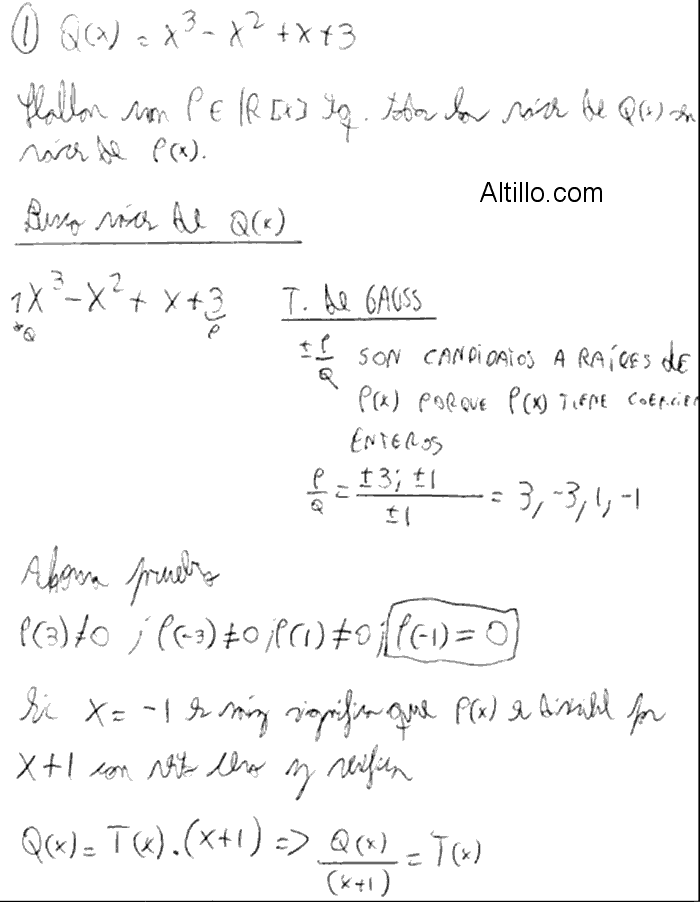 ① Q(x) = x³ - x² + x + 3
Hallar un P ∈ ℝ[x] tq. todas las raíces de Q(x) son
raíces de P(x).
Altillo.com
Busco raíces de Q(x)
1x³ - x² + x + 3
Q P
T. de GAUSS
± P/Q SON CANDIDATOS A RAÍCES de
P(x) PORQUE P(x) TIENE COEFICIEN
ENTEROS
P/Q = ±3; ±1 / ±1 = 3, -3, 1, -1
Ahora pruebo
P(3) ≠ 0 ; P(-3) ≠ 0 ; P(1) ≠ 0 ; P(-1) = 0
Si x = -1 es raíz significa que P(x) es divisible por
x+1 con resto cero y
Q(x) = T(x) . (x+1) => Q(x)/(x+1) = T(x)